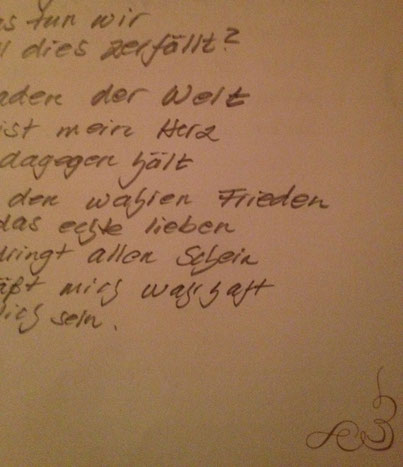 s tun wir
l dies zerfällt?
aden der Welt
ist mein Herz
dagegen hält
den wahren Frieden
das echte lieben
dringt allen Schein
äßt mich wahrhaft
lich sein.